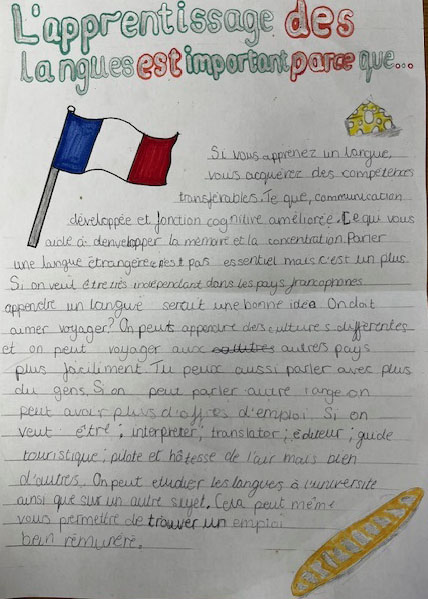 L'apprentissage des
langues est important parce que...
Si vous apprenez un langue,
vous acquérez des compétences
transférables. Te que, communication
développée et fonction cognitive améliorée. Ce qui vous
aide à denvelopper la memoire et la concentration. Parler
une langue étrangère n'est pas essentiel mais c'est un plus.
Si on veut être très indépendant dans les pays francophones
apprendre un langue serait une bonne idea. On doit
aimer voyager? On peut apprendre des cultures différentes
et on peut voyager aux autres pays
plus faciliment. Tu peux aussi parler avec plus
du gens. Si on peut parler autre lange on
peut avoir plus d'offres d'emploi. Si on
veut être; interpreter; translator; éditeur; guide
touristique; pilote et hôtesse de l'air mais bien
d'autres. On peut etudier les langues à l'université
ainsi que sur un autre sujet. Cela peut même
vous permettre de trouver un emploi
bein rémunéré.